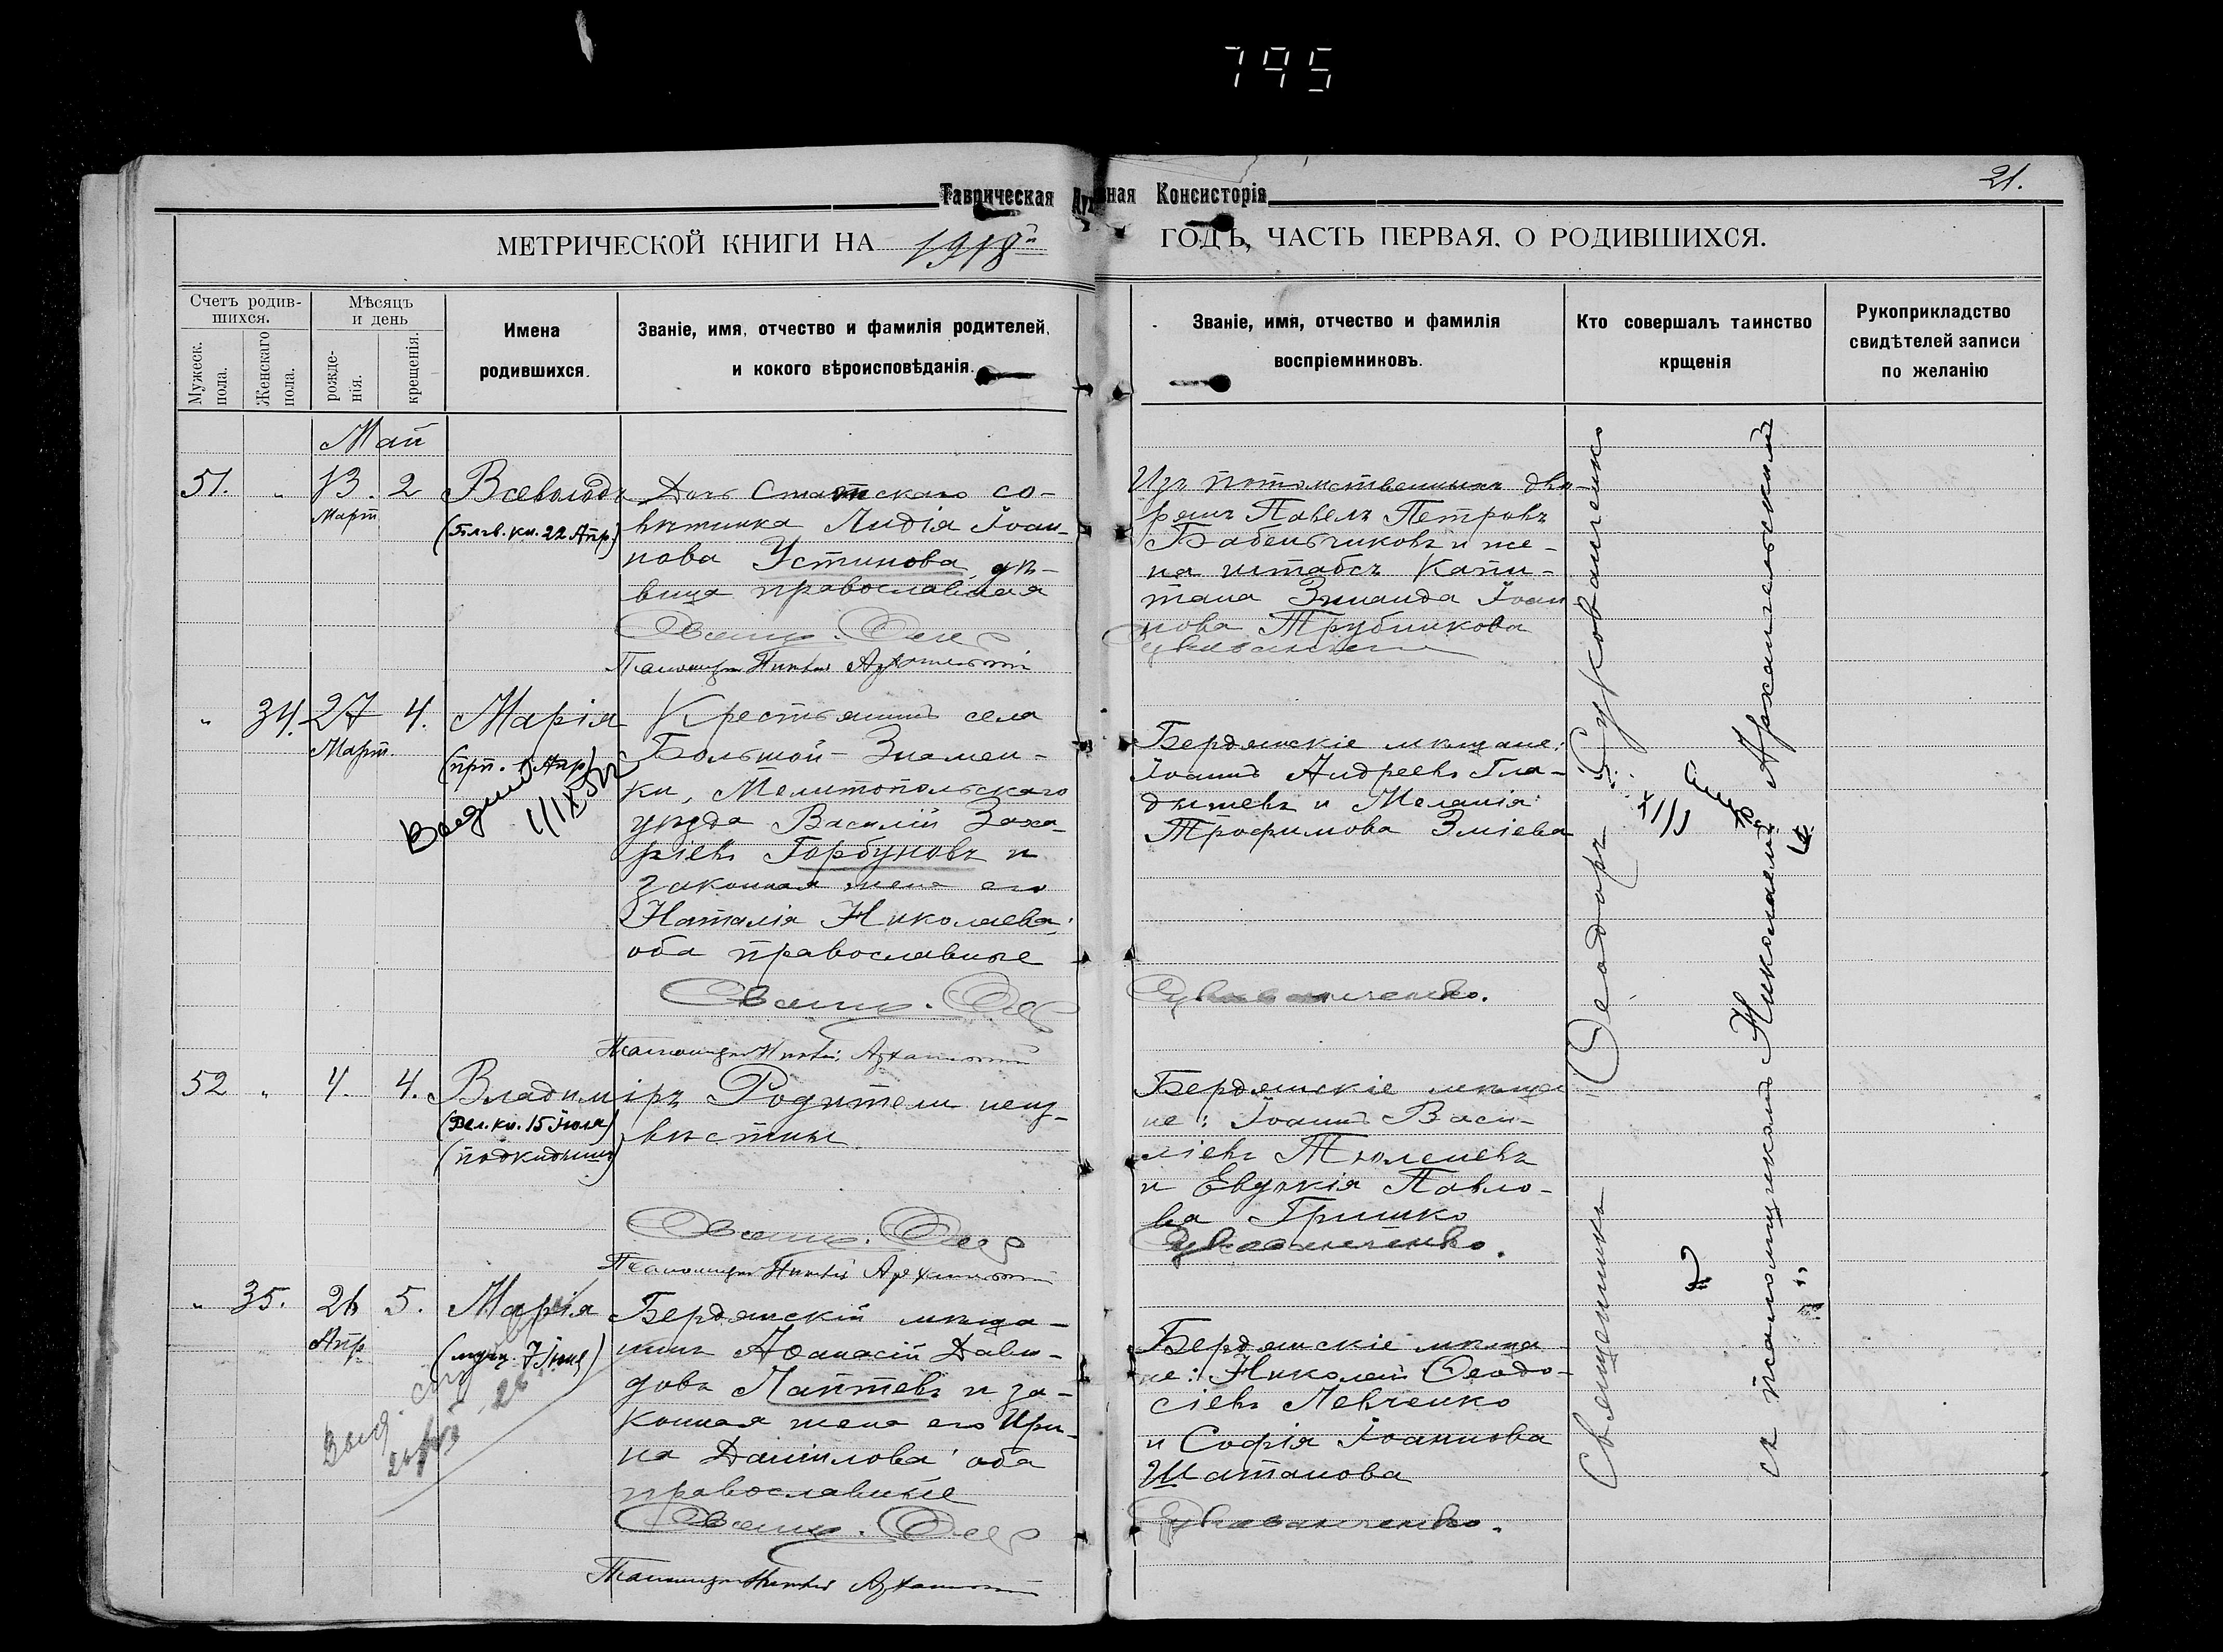 795
21.
Таврическая Духовная Консисторія
МЕТРИЧЕСКОЙ КНИГИ НА 1918й ГОДЪ, ЧАСТЬ ПЕРВАЯ, О РОДИВШИХСЯ.
Счетъ родив-
шихся.
Мужеск.
пола.
Женскаго
пола.
Мѣсяцъ
и день
рожде-
нія.
крещенія.
Имена
родившихся.
Званіе, имя, отчество и фамилія родителей,
и кокого вѣроисповѣданія.
Званіе, имя, отчество и фамилія
воспріемниковъ.
Кто совершалъ таинство
крщенія
Рукоприкладство
свидѣтелей записи
по желанію
Май
51. " 13. 2 Всеволодъ
Март
(Блгв. кн. 22 Апр.)
Дочь Статскаго со-
вѣтника Лидія Іоан-
нова Устинова, дѣ-
вица православная
Свящ. Ѳеод
Псаломщик Никол. Архангельскій
Изъ потомственныхъ дво-
рянъ Павелъ Петровъ
Бабенчиковъ и же-
на штабсъ Капи-
тана Зинаида Іоан
нова Трубникова
Цукованченко
" 34. 27 4. Марія
Март.
(прп. 1 Апр)
Крестьянинъ села
Большой-Знамен-
ки, Мелитопольскаго
уѣзда Василій Заха-
ріевъ Горбуновъ и
законная жена его
Наталія Николаева;
оба православные
Свящ. Ѳеод
Псаломщик Никол. Архангельскій
Бердянскіе мѣщане:
Іоаннъ Андреевъ Гла-
дышевъ и Меланія
Трофимова Зміева
Цукованченко.
52 " 4. 4. Владиміръ
(Вел. кн. 15 Іюля)
(подкидышъ)
Родители неиз-
вѣстны
Свящ. Ѳеод
Псаломщик Никол. Архангельскій
Бердянскіе мѣща
не: Іоаннъ Васи-
ліевъ Тюленевъ
и Евдокія Павло-
ва Гришко
Цукованченко.
" 35. 26 5. Марія
Апр.
(муч. 7 Іюня)
Бердянскій мѣща-
нинъ Аѳанасій Дави-
довъ Лаптевъ и за-
конная жена его Ири-
на Даніилова оба
православные
Свящ. Ѳеод
Псаломщик Никол. Архангельскій
Бердянскіе мѣща
не: Николай Ѳеодо-
сіевъ Левченко
и Софія Іоаннова
Шатанова
Цукованченко.
Священникъ Ѳеодоръ Цукованченко
съ псаломщикомъ Николаемъ Архангельскимъ